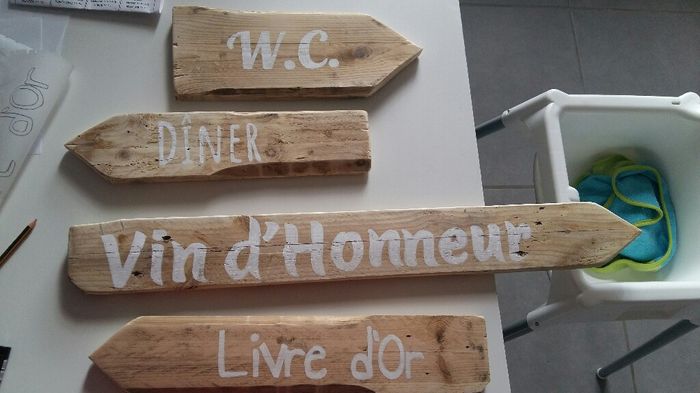 W.C.
DÎNER
Vin d'Honneur
Livre d'Or
d'Or